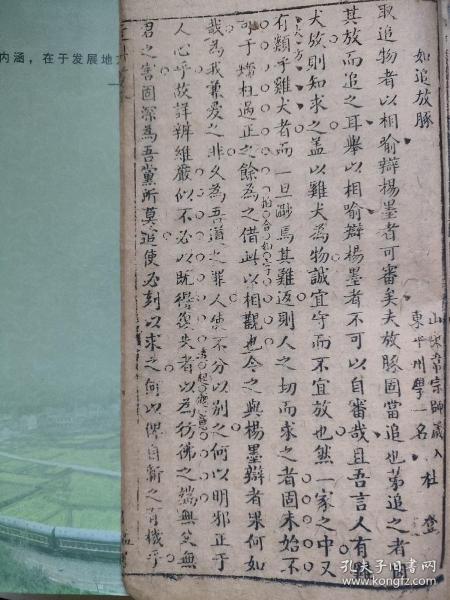 如追放豚
山東常宗師歲入
東平州學一名 杜登
取追物者以相喻辯楊墨者可審矣夫放豚固當追也苐追之者
其放而追之耳舉以相喻辯楊墨者不可以自審哉且吾言人有
犬放則知求之盖以雞犬為物誠宜守而不宜放也然一家之中又
有類乎雞犬者而一旦踰焉其難返則人之切而求之者固未始不
可于矯枉過正之餘為之借此以相觀也今之與楊墨辯者果何如
哉為我兼愛之非久為吾道之罪人使不分以别之何以明邪正于
人心乎故詳辨維嚴似不必以既得復失者以為彷彿之端無父無
君之害固深為吾黨所莫追使必刻以求之何以俾自新之有機乎
内涵，在于发展地
孔夫子旧书网